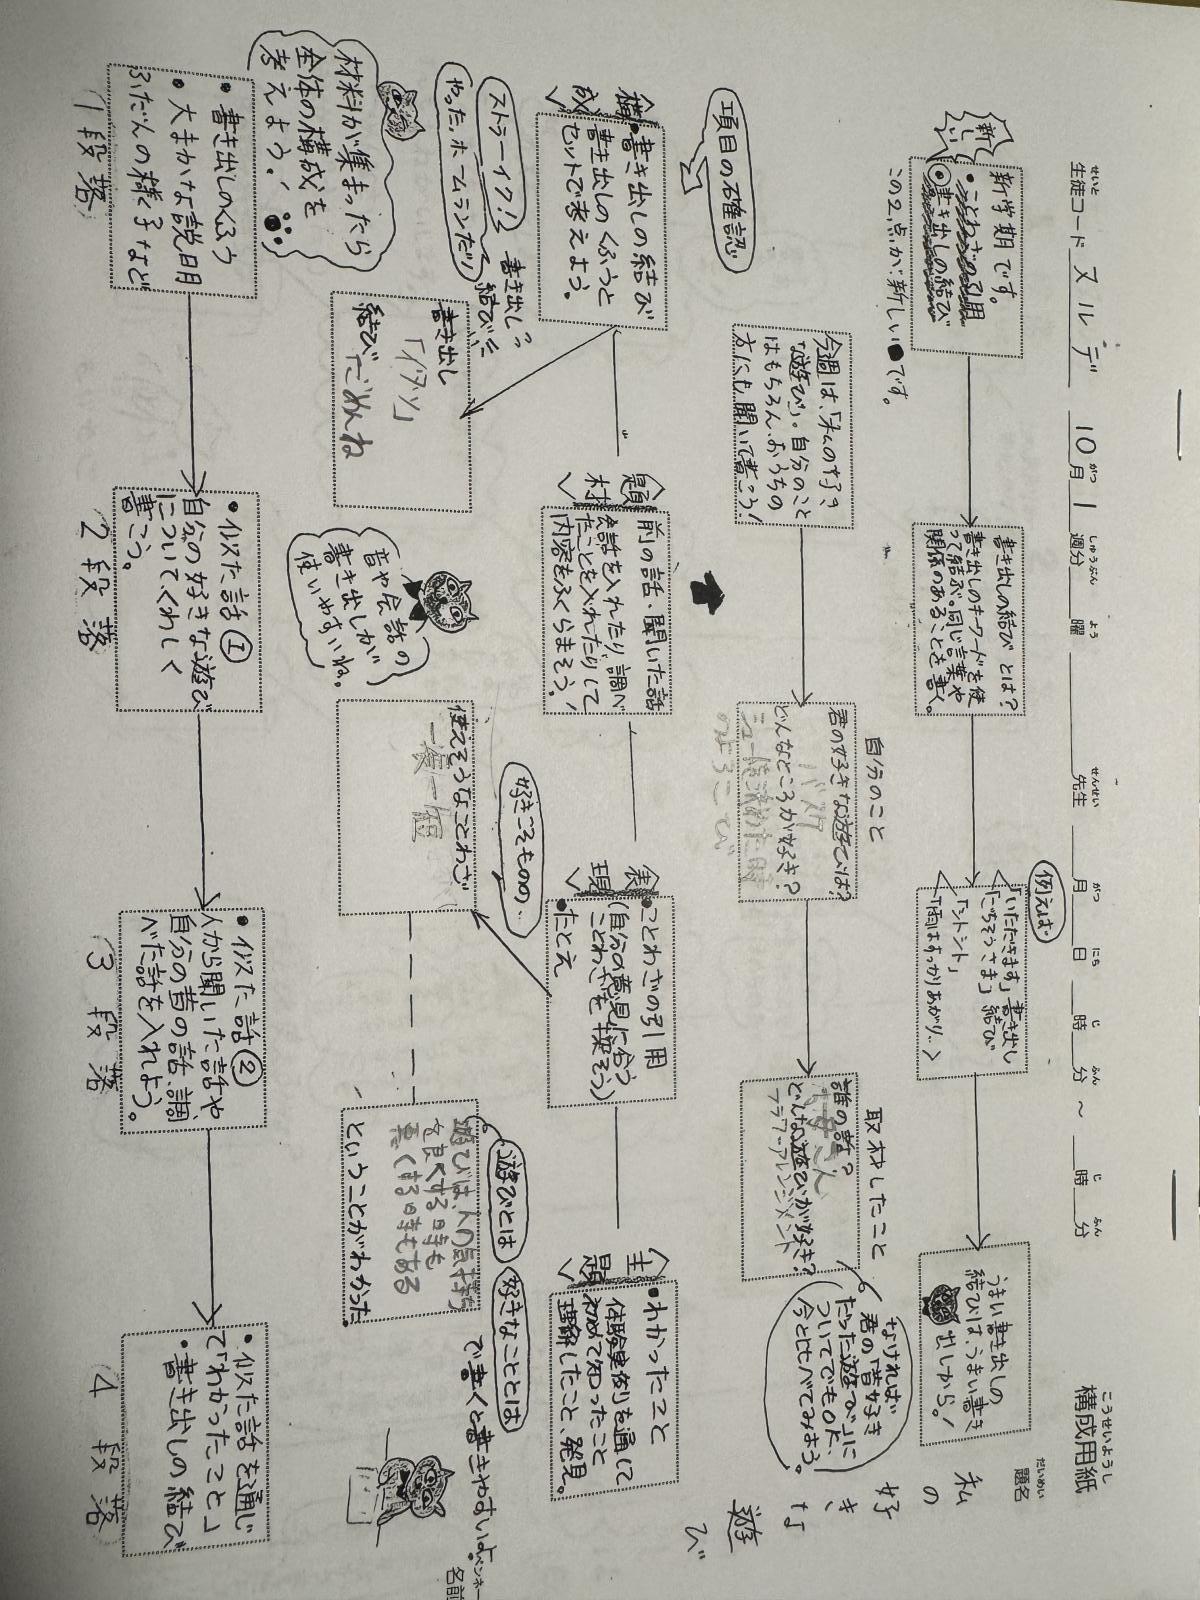 構成用紙
こうせいようし
生徒コード ヌルデ 10月1週分 曜 先生 月 日 時 分 ～ 時 分
せいと がつ しゅうぶん よう せんせい がつ にち じ ふん じ ふん
題名
だいめい
私の好きな遊び
新しい
新学期です。
・ことわざの引用
・書き出しの結び
この2点が新しい です。
書き出しの結びとは?
書き出しのキーワードを使
って結ぶ。同じ言葉や
関係のあることを書く。
例えば
「いただきます」書き出し
「ごちそうさま」結び
「シトシト」
「雨はすっかりあがり…」
うまい書き出しの
結びは、うまい書き
出しから!
今週は、「私の好き
な遊び」。自分のこと
はもちろん、おうちの
方にも聞いて書こう!
自分のこと
君の好きな遊びは?
バスケ
どんなところが好き?
シュート決めた時
のよろこび
取材したこと
誰の話?
お母さん
どんな遊びが好き?
フラワーアレンジメント
なければ
君の「昔好き
だった遊び」に
ついてでもOK、
今と比べてみよう。
項目の確認
〈構成〉
・書き出しの結び
書き出しのくふうと
セットで考えよう。
〈題材〉
前の話・聞いた話
会話を入れたり、調べ
たことを入れたりして
内容をふくらまそう!
〈表現〉
・ことわざの引用
(自分の意見に合う
ことわざを探そう)
・たとえ
〈主題〉
・わかったこと
体験実例を通して
初めて知ったこと
理解したこと、発見。
ストラーイク!! 書き出し?
やった、ホームランだ!! 結び
書き出し
「イタッ」
結び「ごめんね
音や会話の
書き出しが
使いやすいね。
好きこそものの…
使えそうなことわざ
一長一短
遊びとは
好きなこととは
で書くと書きやすいよ
遊びは、人の気持ち
を良くする時も
悪くする時もある
ということがわかった。
ペンネーム
名前
材料が集まったら
全体の構成を
考えよう!
・書き出しのくふう
・大まかな説明
ふだんの様子など
1段落
・似た話①
自分の好きな遊び
についてくわしく
書こう。
2段落
・似た話②
人から聞いた話や
自分の昔の話、調
べた話を入れよう。
3段落
・似た話を通じ
て「わかったこと」
・書き出しの結び
4段落